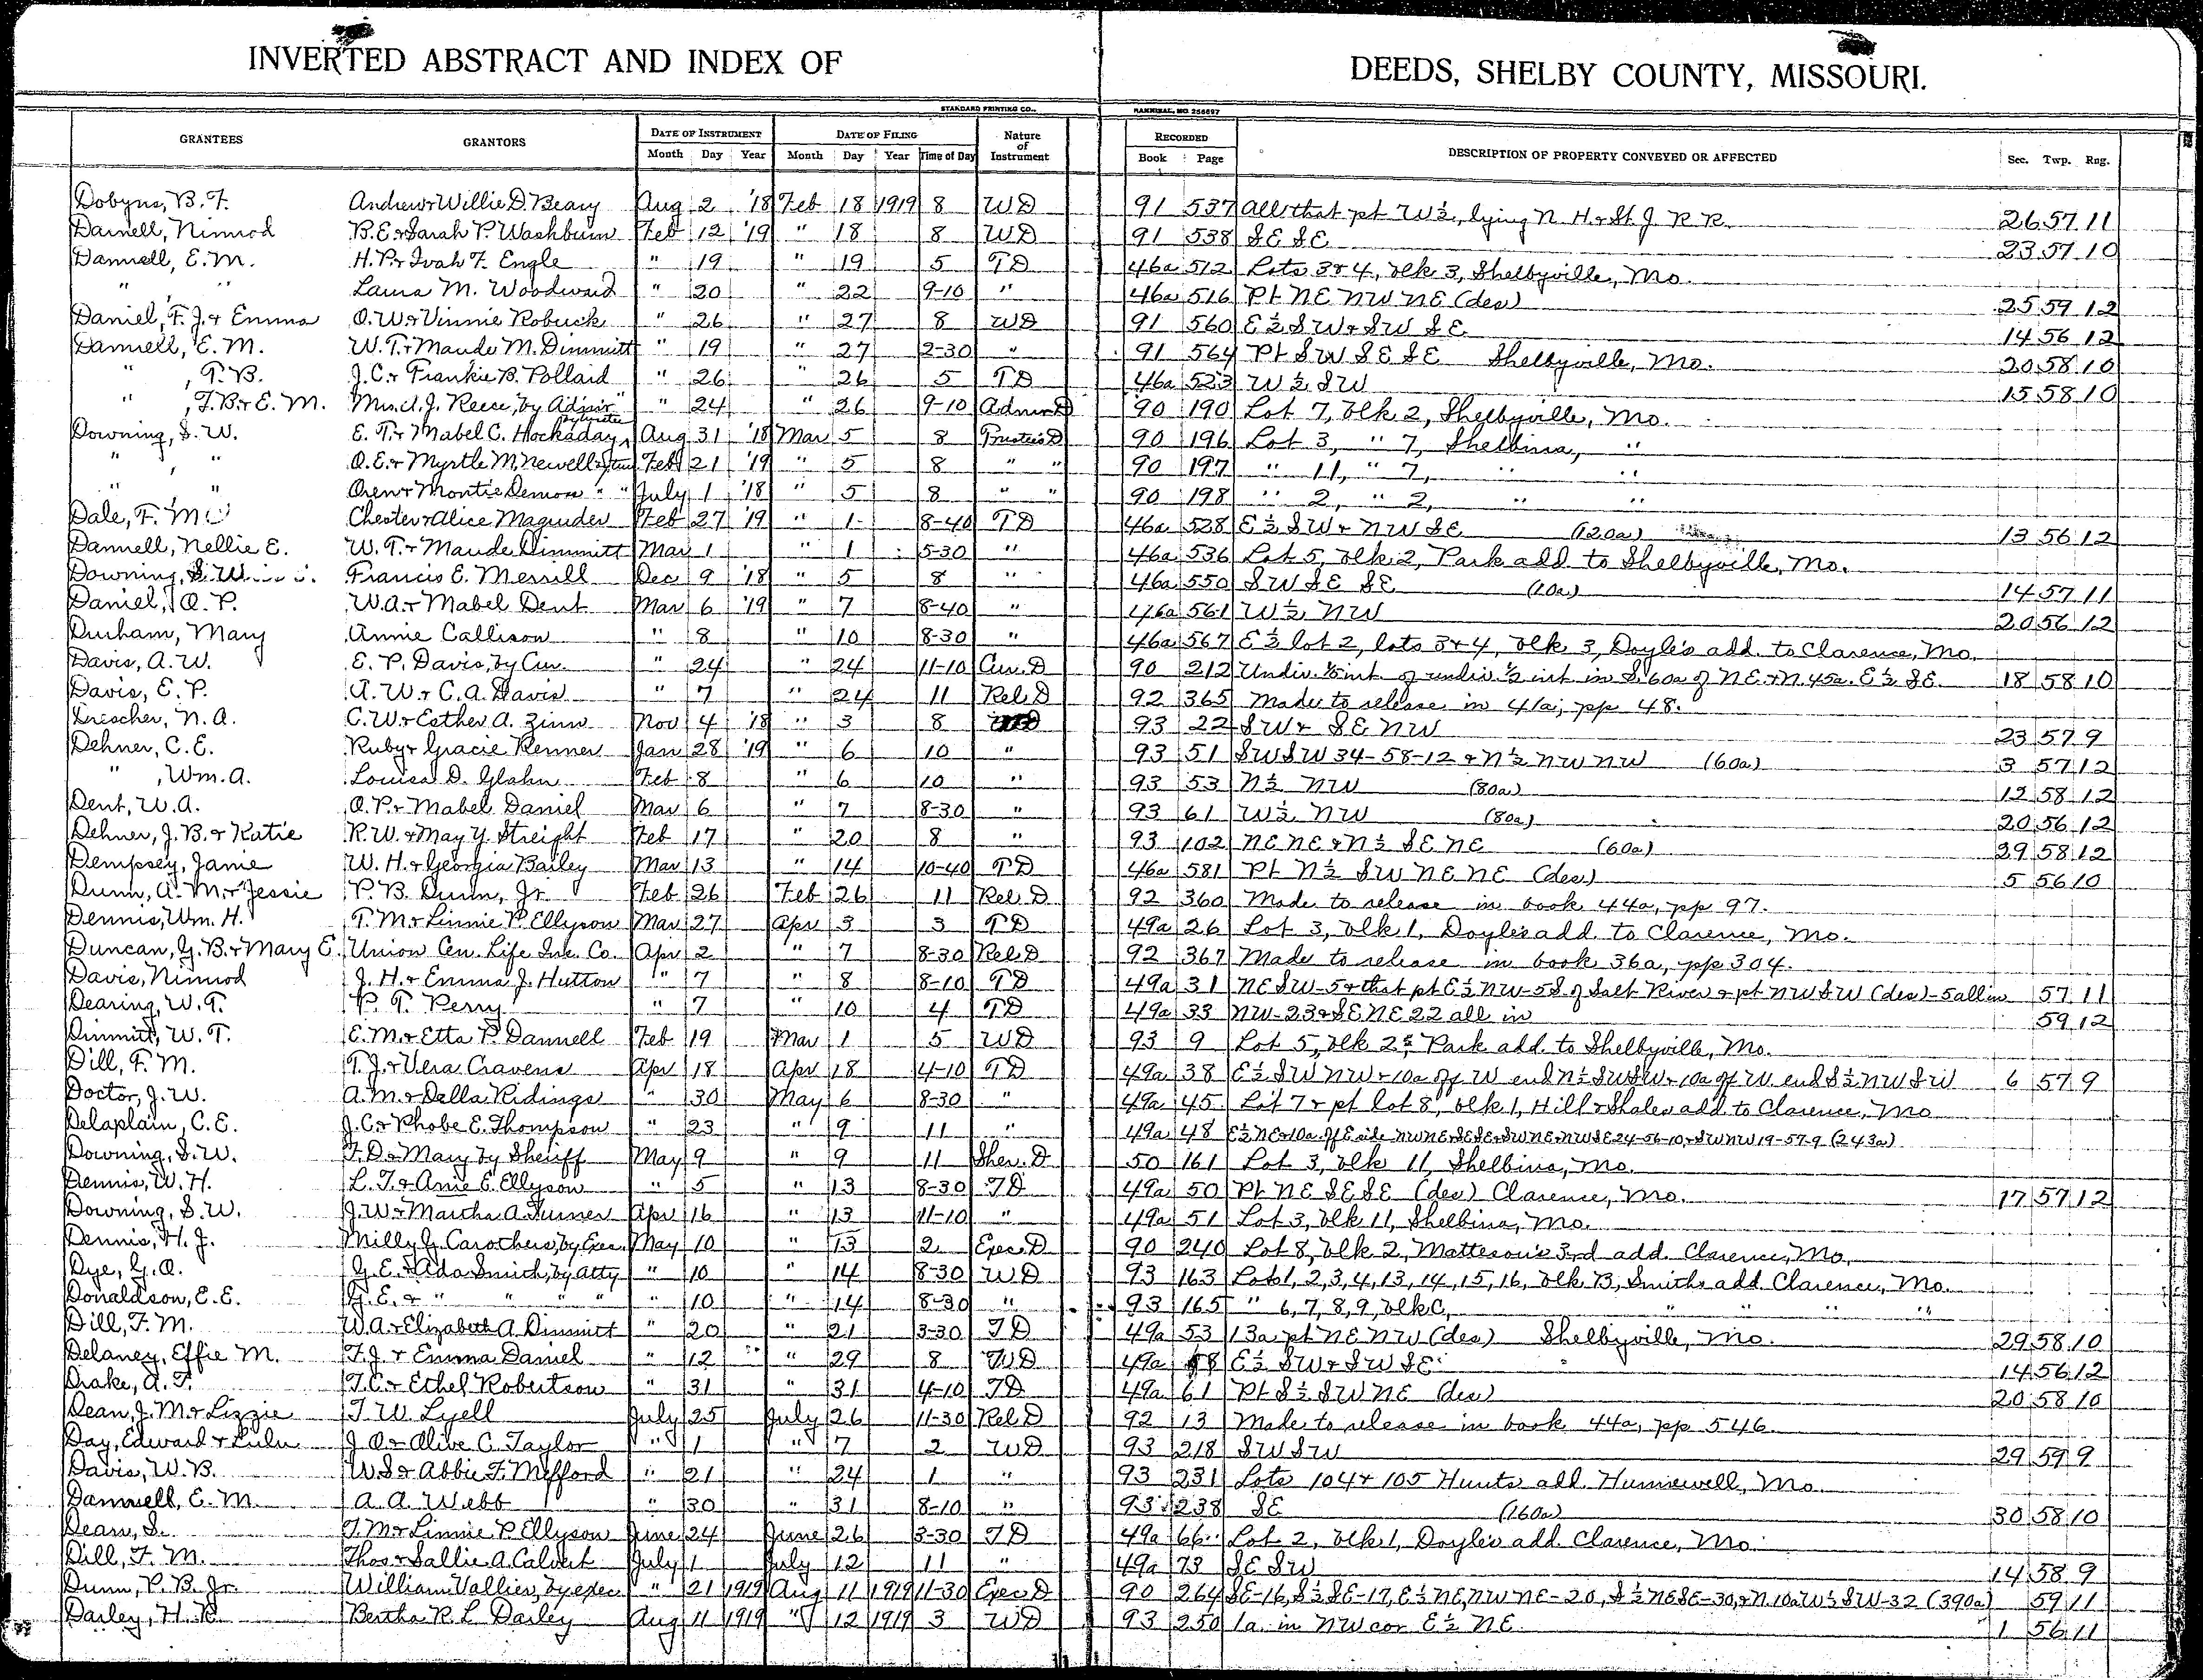 INVERTED ABSTRACT AND INDEX OF DEEDS, SHELBY COUNTY, MISSOURI.
STANDARD PRINTING CO., HANNIBAL, MO 256697
GRANTEES GRANTORS DATE OF INSTRUMENT DATE OF FILING Nature of Instrument RECORDED DESCRIPTION OF PROPERTY CONVEYED OR AFFECTED Sec. Twp. Rng.
Month Day Year Month Day Year Time of Day Book Page
Dobyns, B. F. Andrew & Willie D. Beary Aug 2 '18 Feb 18 1919 8 WD 91 537 All that pt W½, lying N. H. & St. J. R R 26 57 11
Darnell, Nimrod B. E. & Sarah P. Washburn Feb 12 '19 " 18 8 WD 91 538 SE SE 23 57 10
Dannell, E. M. H. P. & Ivah F. Engle " 19 " 19 5 TD 46a 512 Lots 3 & 4, blk 3, Shelbyville, Mo.
" , " Laura M. Woodward " 20 " 22 9-10 " 46a 516 Pt NE NW NE (des) 25 59 12
Daniel, F. J. & Emma O. W. & Vinnie Robuck " 26 " 27 8 WD 91 560 E½ SW & SW SE 14 56 12
Dannell, E. M. W. T. & Maude M. Dimmitt " 19 " 27 2-30 " 91 564 Pt SW SE SE Shelbyville, Mo. 20 58 10
" , T. B. J. C. & Frankie B. Pollard " 26 " 26 5 TD 46a 523 W½ SW 15 58 10
" , T. B. & E. M. Mrs. A. J. Reece, by Admr " 24 " 26 9-10 Admr D 90 190 Lot 7, blk 2, Shelbyville, Mo.
Downing, S. W. E. T. & Mabel C. Hockaday, by trustee Aug 31 '18 Mar 5 8 Trustee's D 90 196 Lot 3, " 7, Shelbina, "
" , " O. E. & Myrtle M. Newell Feb 21 '19 " 5 8 " " 90 197 " 11, " 7, " "
" " Oren & Montie Demoss " " July 1 '18 " 5 8 " " 90 198 " 2, " 2, " "
Dale, F. M. Chester & Alice Magruder Feb 27 '19 " 1 8-40 TD 46a 528 E½ SW & NW SE (120a) 13 56 12
Dannell, Nellie E. W. T. & Maude Dimmitt Mar 1 " 1 5-30 " 46a 536 Lot 5, blk 2, Park add. to Shelbyville, Mo.
Downing, S. W. Francis E. Merrill Dec 9 '18 " 5 8 " 46a 550 SW SE SE (10a) 14 57 11
Daniel, O. P. W. A. & Mabel Dent Mar 6 '19 " 7 8-40 " 46a 561 W½ NW 20 56 12
Durham, Mary Annie Callison " 8 " 10 8-30 " 46a 567 E½ lot 2, lots 3 & 4, blk 3, Doyle's add. to Clarence, Mo.
Davis, A. W. E. P. Davis, by Cur. " 24 " 24 11-10 Cur. D 90 212 Undiv. 1/5 int. of undiv. ½ int in S. 60a of NE & N. 45a. E½ SE 18 58 10
Davis, E. P. A. W. & C. A. Davis " 7 " 24 11 Rel D 92 365 Made to release in 41a, pp 48.
Drescher, N. A. C. W. & Esther A. Zinn Nov 4 '18 " 3 8 WD 93 22 SW & SE NW 23 57 9
Dehner, C. E. Ruby & Gracie Renner Jan 28 '19 " 6 10 " 93 51 SW SW 34-58-12 & N½ NW NW (60a) 3 57 12
" , Wm. A. Louisa D. Glahn Feb 8 " 6 10 " 93 53 N½ NW (80a) 12 58 12
Dent, W. A. O. P. & Mabel Daniel Mar 6 " 7 8-30 " 93 61 W½ NW (80a) 20 56 12
Dehner, J. B. & Katie R. W. & May Y. Streight Feb 17 " 20 8 " 93 102 NE NE & N½ SE NE (60a) 29 58 12
Dempsey, Janie W. H. & Georgia Bailey Mar 13 " 14 10-40 TD 46a 581 Pt N½ SW NE NE (des) 5 56 10
Dunn, A. M. & Jessie P. B. Dunn, Jr. Feb 26 Feb 26 11 Rel. D 92 360 Made to release in book 44a, pp 97.
Dennis, Wm. H. T. M. & Linnie P. Ellyson Mar 27 Apr 3 3 TD 49a 26 Lot 3, blk 1, Doyle's add. to Clarence, Mo.
Duncan, G. B. & Mary E. Union Cen. Life Ins. Co. Apr 2 " 7 8-30 Rel. D 92 367 Made to release in book 36a, pp 304.
Davis, Nimrod J. H. & Emma J. Hutton " 7 " 8 8-10 TD 49a 31 NE SW-5 & that pt E½ NW-5 S. of Salt River & pt NW SW (des)-5 all in 57 11
Dearing, W. T. P. T. Perry " 7 " 10 4 TD 49a 33 NW-23 & SE NE 22 all in 59 12
Dimmitt, W. T. E. M. & Etta P. Dannell Feb 19 Mar 1 5 WD 93 9 Lot 5, blk 2, Park add. to Shelbyville, Mo.
Dill, F. M. T. J. & Vera Cravens Apr 18 Apr 18 4-10 TD 49a 38 E½ SW NW & 10a off W end N½ SW SW & 10a off W. end S½ NW SW 6 57 9
Doctor, J. W. A. M. & Della Ridings " 30 May 6 8-30 " 49a 45 Lot 7 & pt lot 8, blk 1, Hill & Shales add to Clarence, Mo
Delaplain, C. E. J. C. & Phobe E. Thompson " 23 " 9 11 " 49a 48 E½ NE & 10a. off E side NW NE & SE SE & SW NE & NW SE 24-56-10, & SW NW 19-57-9 (243a)
Downing, S. W. F. D. & Mary by Sheriff May 9 " 9 11 Sher. D 50 161 Lot 3, blk 11, Shelbina, Mo.
Dennis, W. H. L. F. & Anie E. Ellyson " 5 " 13 8-30 TD 49a 50 Pt NE SE SE (des) Clarence, Mo. 17 57 12
Downing, S. W. J. W. & Martha A. Turner Apr 16 " 13 11-10 " 49a 51 Lot 3, blk 11, Shelbina, Mo.
Dennis, H. J. Milly G. Carothers, by Exec. May 10 " 13 2 Exec. D 90 240 Lot 8, blk 2, Matteson's 3rd add. Clarence, Mo.
Dye, G. O. G. E. & Ada Smith, by atty " 10 " 14 8-30 WD 93 163 Lots 1, 2, 3, 4, 13, 14, 15, 16, blk B, Smiths add. Clarence, Mo.
Donaldson, E. E. G. E. & " " " " " 10 " 14 8-30 " 93 165 " 6, 7, 8, 9, blk C, " " " "
Dill, F. M. W. A. & Elizabeth A. Dimmitt " 20 " 21 3-30 TD 49a 53 13a pt NE NW (des) Shelbyville, Mo. 29 58 10
Delaney, Effie M. F. J. & Emma Daniel " 12 " 29 8 WD 49a E½ SW & SW SE 14 56 12
Drake, A. F. T. C. & Ethel Robertson " 31 " 31 4-10 TD 49a 61 Pt S½ SW NE (des) 20 58 10
Dean, J. M. & Lizzie T. W. Lyell July 25 July 26 11-30 Rel. D 92 13 Made to release in book 44a, pp 546
Day, Edward & Lulu J. O. & Olive C. Taylor " 1 " 7 2 WD 93 218 SW SW 29 59 9
Davis, W. B. W. S. & Abbie F. Mefford " 21 " 24 1 " 93 231 Lots 104 & 105 Hunts add. Hunnewell, Mo.
Dannell, E. M. A. A. Webb " 30 " 31 8-10 " 93 238 SE (160a) 30 58 10
Dean, S. T. M. & Linnie P. Ellyson June 24 June 26 3-30 TD 49a 66 Lot 2, blk 1, Doyle's add. Clarence, Mo.
Dill, F. M. Thos & Sallie A. Calvert July 1 July 12 11 " 49a 73 SE SW 14 58 9
Dunn, P. B. Jr. William Vallier, by exec. " 21 1919 Aug 11 1919 11-30 Exec D 90 264 SE-16, S½ SE-17, E½ NE, NW NE-20, S½ NE SE-30, & N. 10a W½ SW-32 (390a) 59 11
Darley, H. R. Bertha R. L. Darley Aug 11 1919 " 12 1919 3 WD 93 250 1a. in NW cor E½ NE 1 56 11